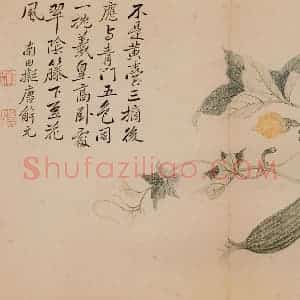 不是黃臺三摘後
應与青門五色同
一枕羲皇高卧處
翠陰籐下豆花
風
南田擬唐解元
Shufaziliao.COM